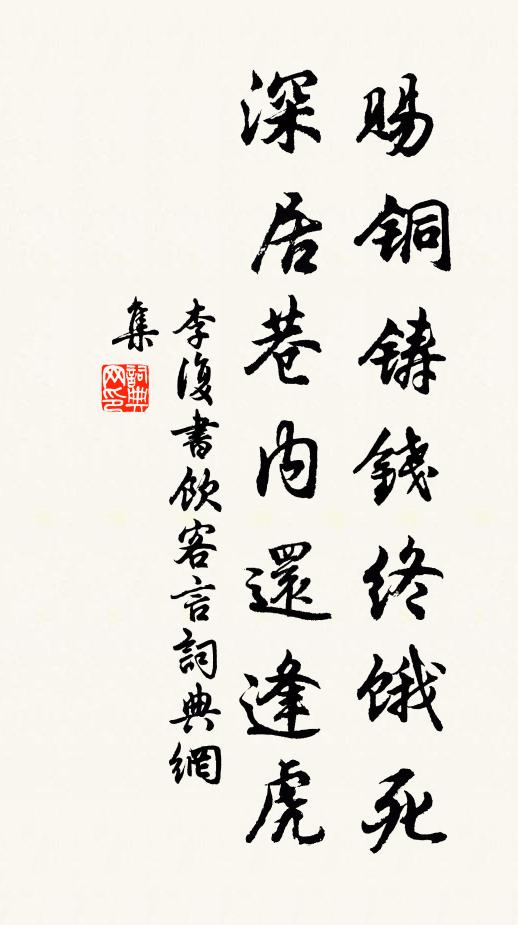 賜銅鑄錢終餓死
深居巷內還逢虎
李復書飲客言詞典網
集
詞典
网印